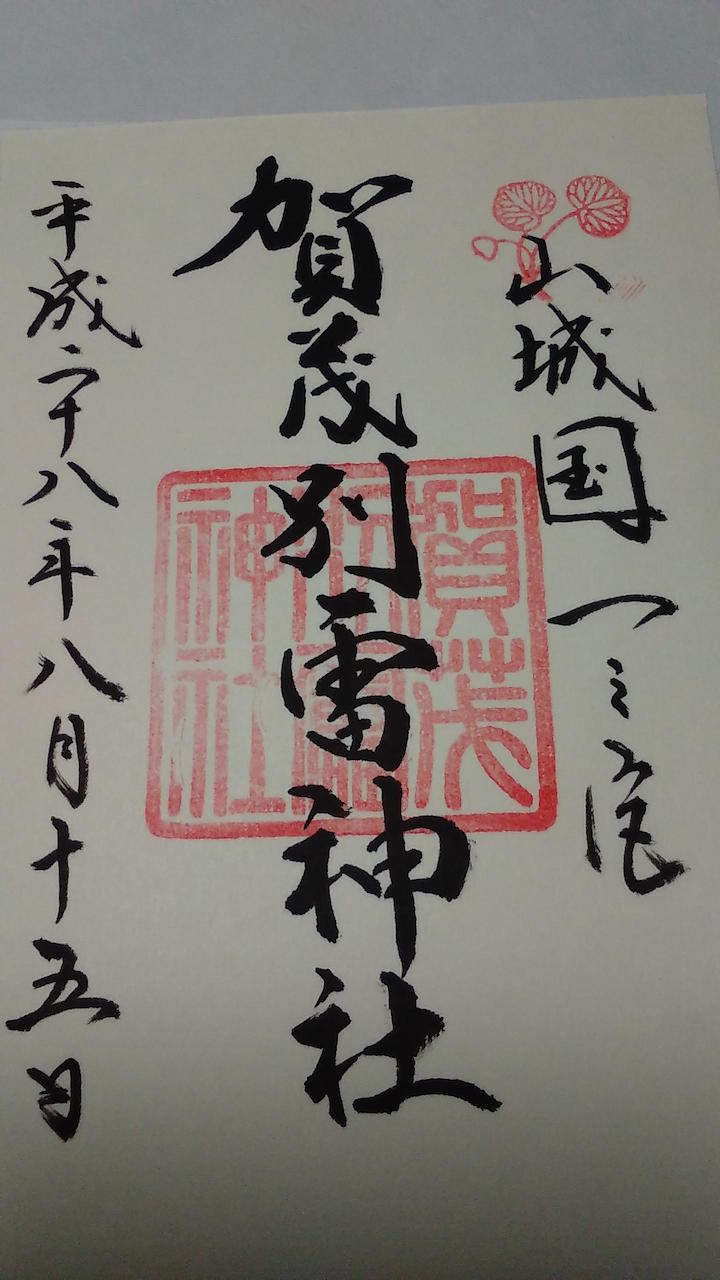 山城国一之宮
賀茂別雷神社
賀茂別雷神社
平成二十八年八月十五日